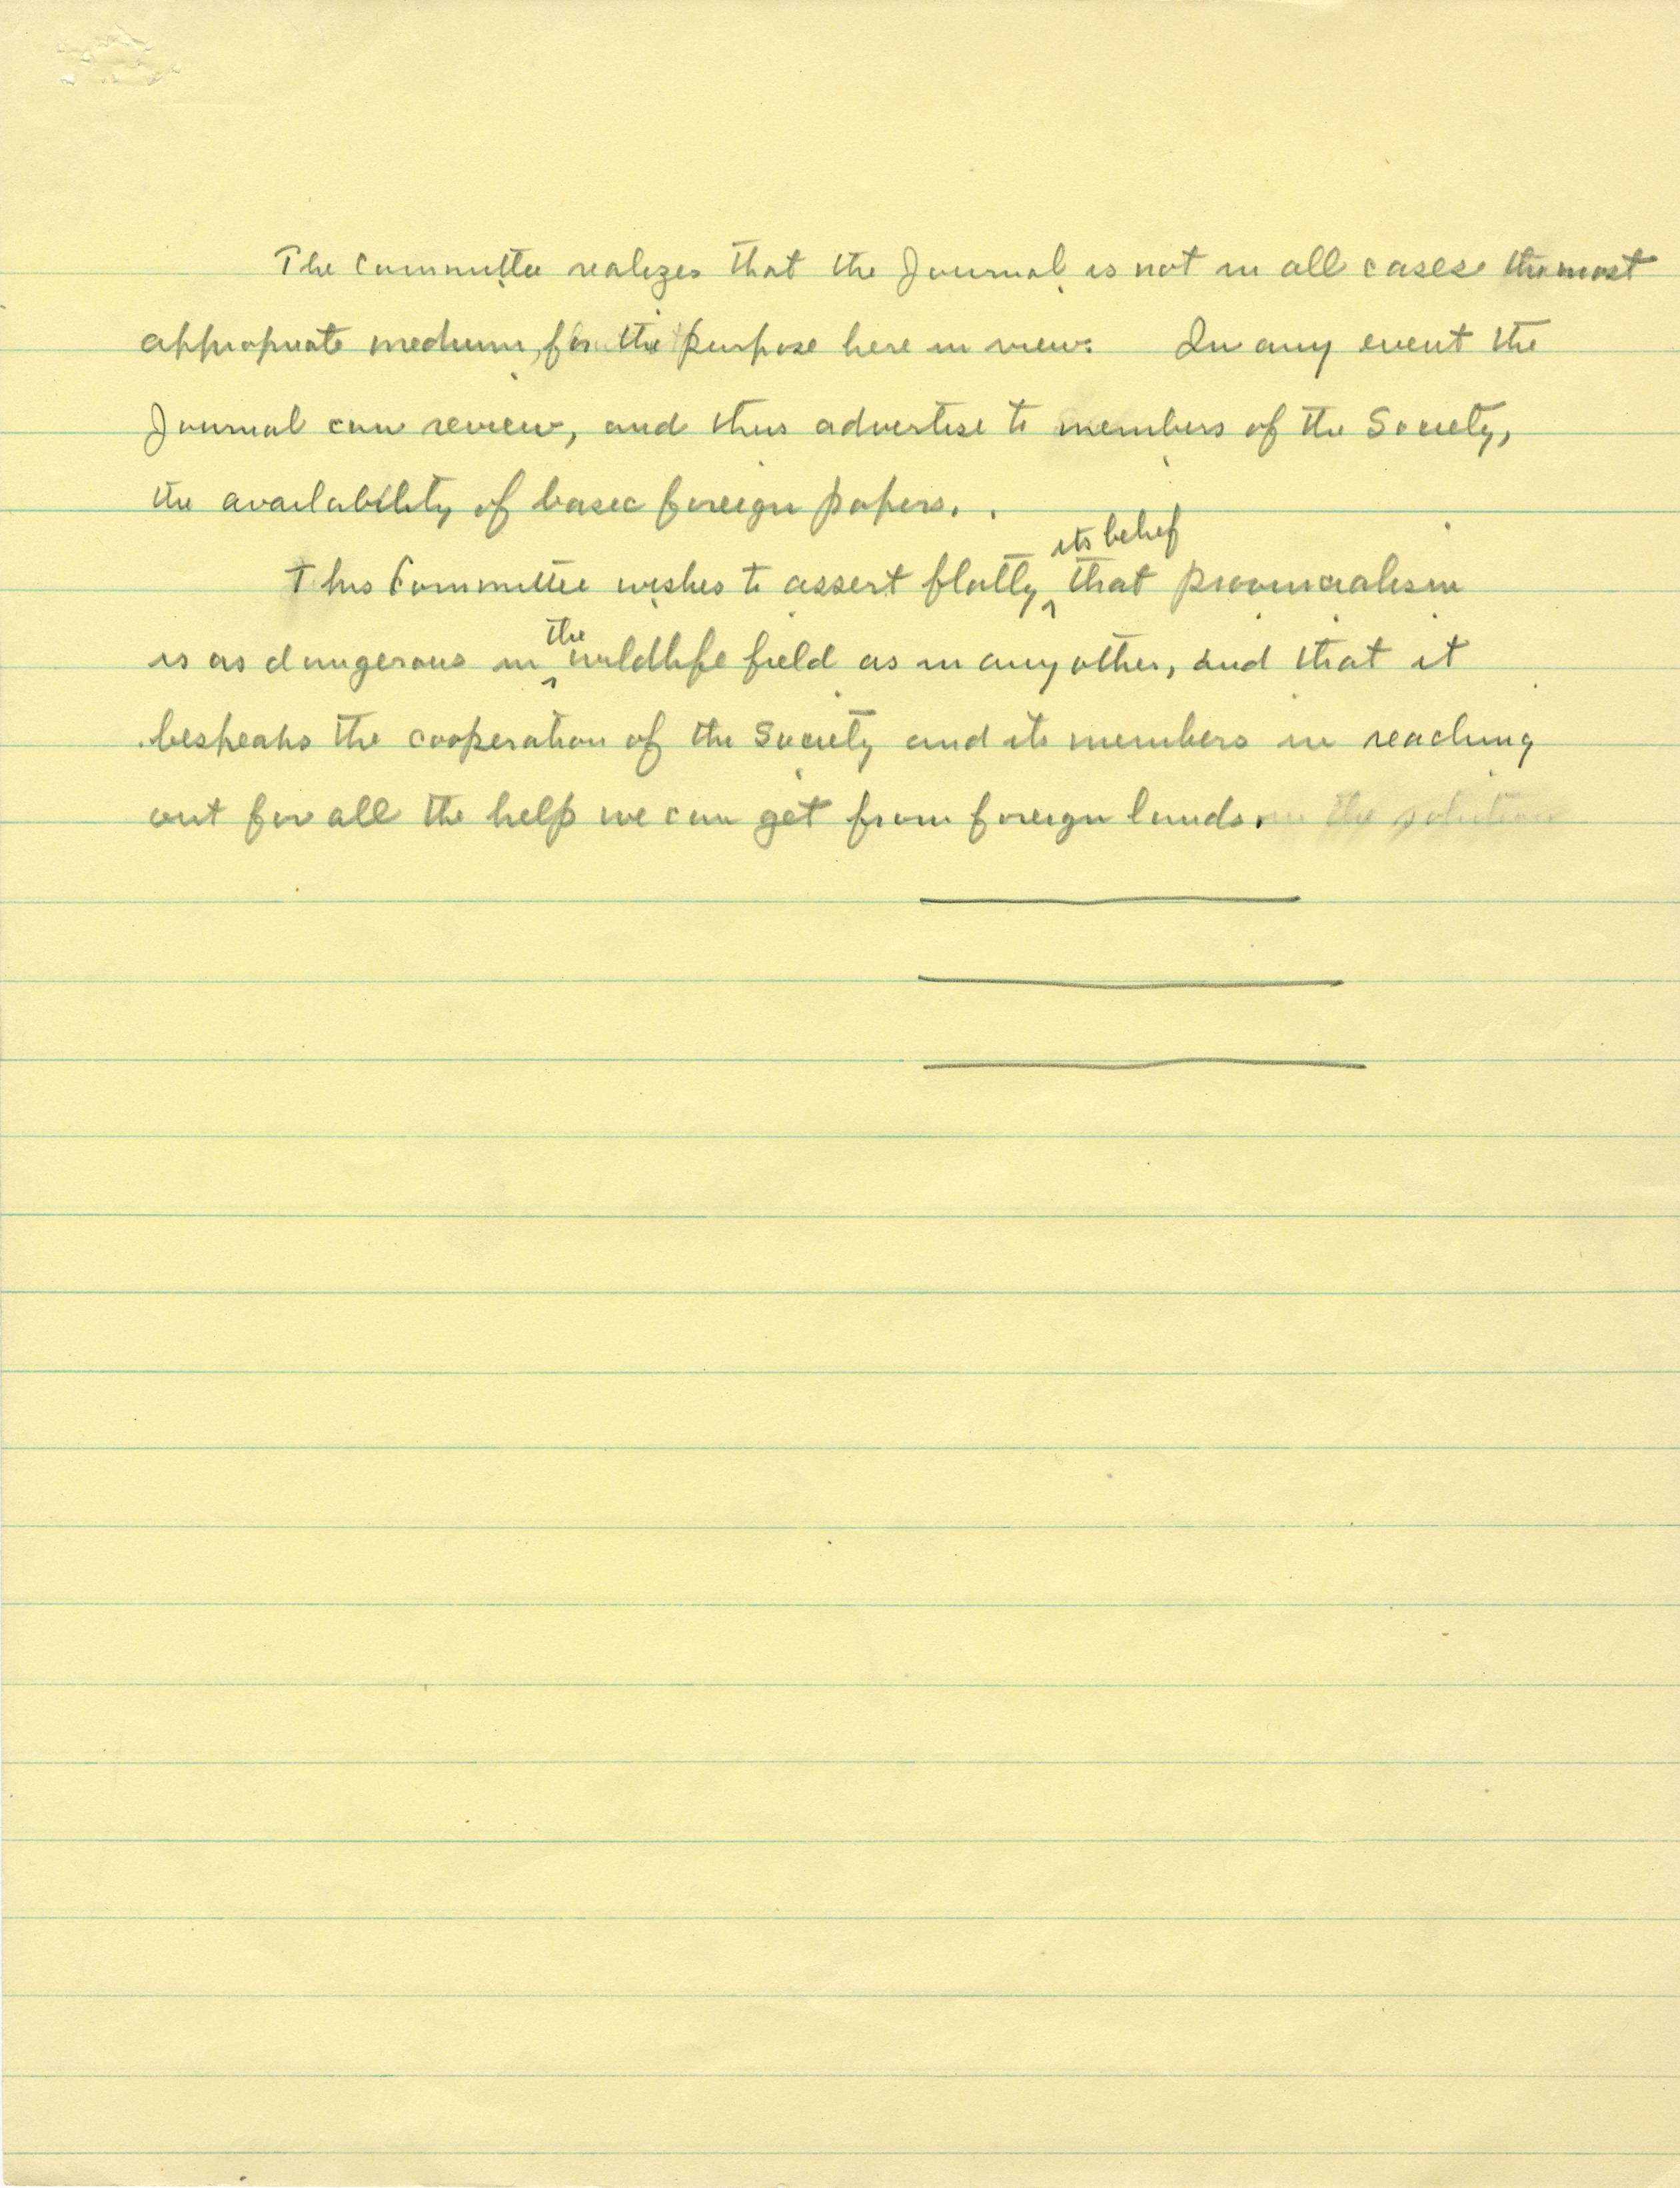 The Committee realizes that the Journal is not in all cases the most
appropriate medium, for the purpose here in view. In any event the
Journal can review, and thus advertise to members of the Society,
the availability of basic foreign papers.
This Committee wishes to assert flatly its belief that provincialism
is as dangerous in the wildlife field as in any other, and that it
bespeaks the cooperation of the Society and its members in reaching
out for all the help we can get from foreign lands.